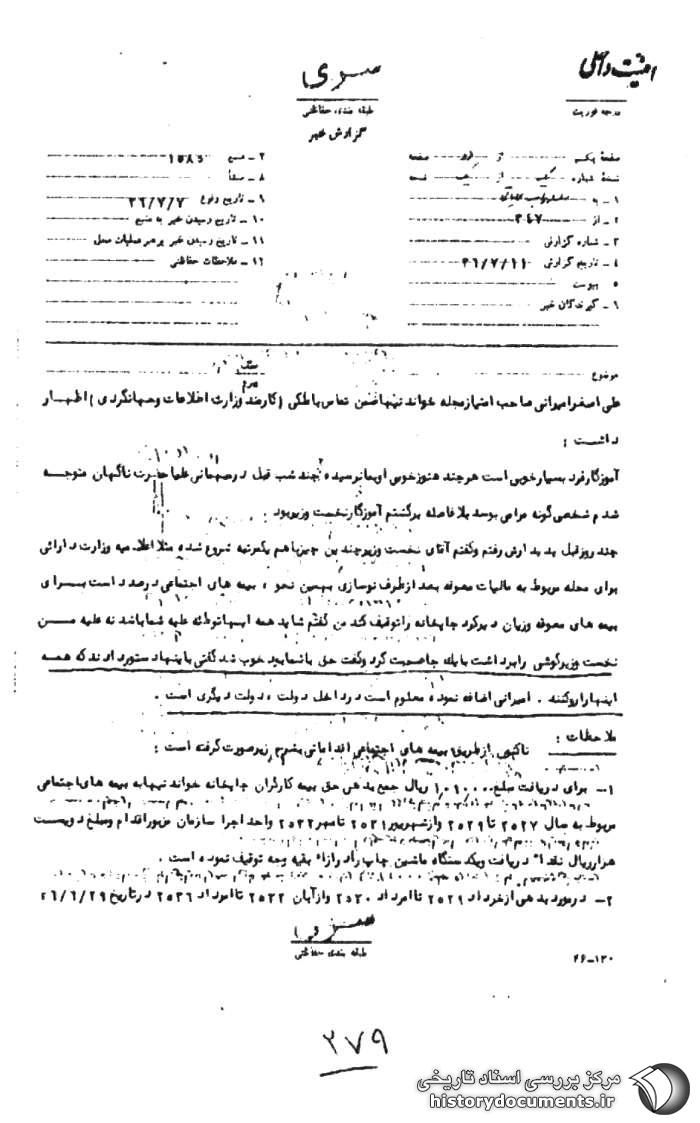 امنیت داخلی
درجه فوریت
سری
طبقه بندی حفاظتی
گزارش خبر
صفحهٔ یکم از دو صفحه
نسخهٔ شماره یک از یک نسخه
۱ - به
۲ - از ۳۴۷
۳ - شماره گزارش
۴ - تاریخ گزارش ۳۶/۷/۱۱
۵ - پیوست
۶ - گیرندگان خبر
۷ - منبع
۸ - منشأ
۹ - تاریخ وقوع ۳۶/۷/۷
۱۰ - تاریخ رسیدن خبر به منبع
۱۱ - تاریخ رسیدن خبر برهبر عملیات محل
۱۲ - ملاحظات حفاظتی
موضوع
علی اصغر امیرانی صاحب امتیاز مجله خواندنیها ضمن تماس با ملکی (کارمند وزارت اطلاعات وجهانگردی) اظهار
داشت :
آموزگار فرد بسیار خوبی است هرچند هنوز خوبی او بما نرسیده چند شب قبل در مهمانی علیا حضرت ناگهان متوجه
شدم شخصی گونه مرا می بوسد بلافاصله برگشتم آموزگار نخست وزیر بود
چند روز قبل بدیدارش رفتم وگفتم آقای نخست وزیر چندین چیز باهم یکمرتبه شروع شده مثلا اعلامیه وزارت دارائی
برای مجله مربوط به مالیات معوقه بعد از طرف نوسازی بهمین نحو ، بیمه های اجتماعی درصدد است برای
بیمه های معوقه وزیان دیرکرد چاپخانه را توقیف کند من گفتم شاید همه اینها توطئه علیه شما باشد نه علیه من
نخست وزیر گوشی را برداشت با یک جا صحبت کرد وگفت حق با شماست خوب شد گفتی با اینها دستور دادند که همه
اینها را روکنند . امیرانی اضافه نموده معلوم است در داخل دولت ، دولت دیگری است .
ملاحظات :
تاکنون از طریق بیمه های اجتماعی اقداماتی بشرح زیر صورت گرفته است :
۱- برای دریافت مبلغ ریال جمع بدهی حق بیمه کارگران چاپخانه خواندنیها به بیمه های اجتماعی
مربوط به سال ۲۵۲۷ تا ۲۵۲۹ واز شهریور ۲۵۳۱ تا مهر ۲۵۳۲ واحد اجرا سازمان مزبور اقدام ومبلغ دویست
هزار ریال نقدا" دریافت ویکدستگاه ماشین چاپ را در ازاء بقیه وجه توقیف نموده است .
۲- در مورد بدهی از خرداد ۲۵۲۹ تا مرداد ۲۵۳۰ واز آبان ۲۵۳۲ تا مرداد ۲۵۳۶ در تاریخ ۳۶/۶/۲۹
سری
طبقه بندی حفاظتی
۲۶-۱۳۰
۲۷۹
مرکز بررسی اسناد تاریخی
historydocuments.ir